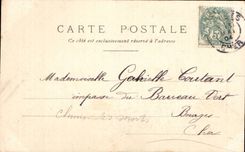 CARTE POSTALE
Ce côté est exclusivement réservé à l'adresse
Mademoiselle Gabrielle Coutant
impasse du Barreau Vert
Bourges
Cher